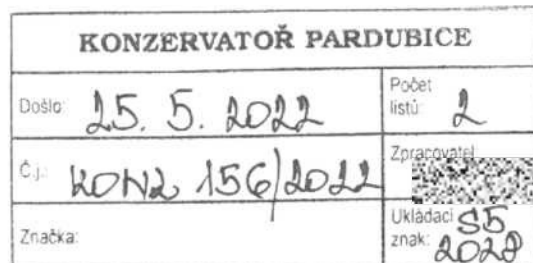 KONZERVATOŘ PARDUBICE
Došlo: 25. 5. 2022
Počet listů: 2
Č.j.: KONZ 156/2022
Zpracovatel:
Značka:
Ukládací znak: S5 2028